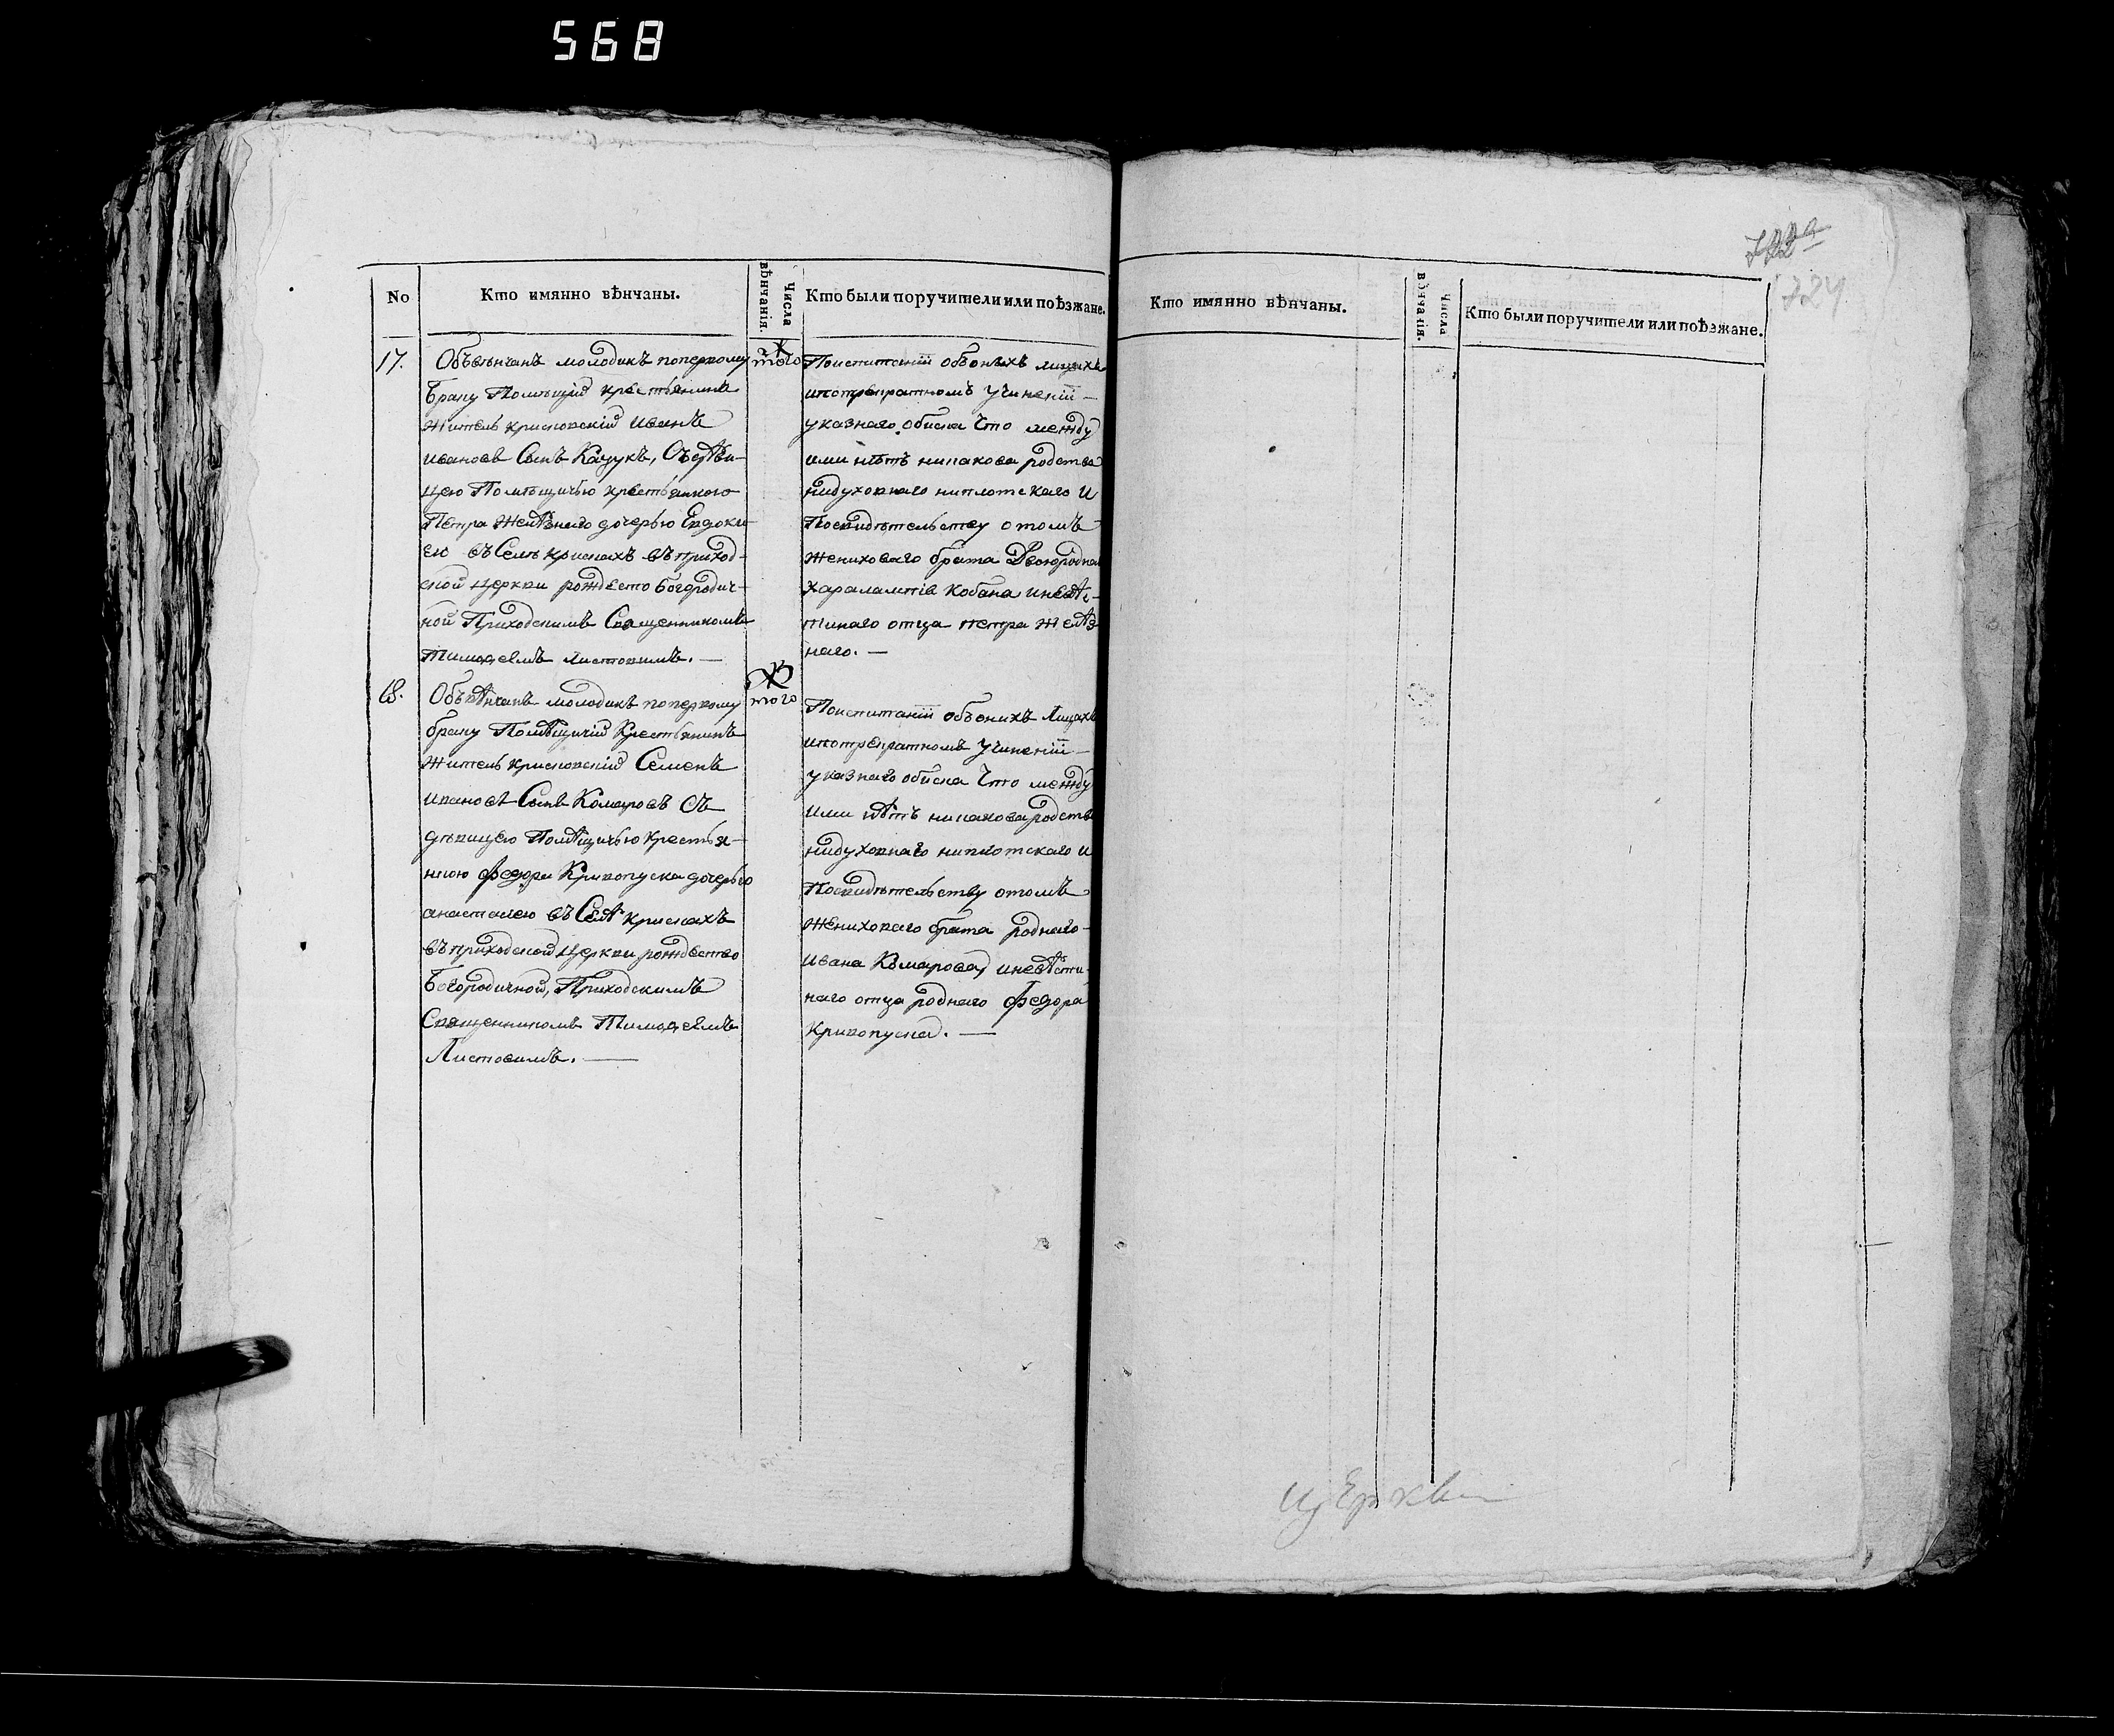 568
No
Кто имянно вѣнчаны.
Числа вѣнчанія.
Кто были поручители или поѣзжане.
17.
Объвѣнчанъ молодикъ поперкому
браку Помѣщицкій крестьянинъ
житель крисковскій Иванъ
Ивановъ Сынъ Кацукъ, Съдѣви-
цею Помѣщичью крестьянкою
Петра Желѣзнаго дочерью Евдоки-
ею въ Селѣ крискахъ въ приход-
ской церкви рождесто Богородич-
ной Приходскимъ Священникомъ
Тимоѳеемъ Листовимъ. —
того
Поиспитаніи объонѣхъ лицахъ
ипотреиратномъ учиненіи —
указнаго обиска Что между
ими нѣтъ никакова родства
нидуховнаго ниплотскаго и
Посвидѣтельству отомъ
жениховаго брата Двоюродна
Харалампія Кобана иневѣс-
тинаго отца петра желѣз-
наго. —
18.
Объвѣнчанъ молодикъ поперкому
браку Помѣщичій Крестьянинъ
житель крисковскій Семенъ
ивановъ Сынъ Комаровъ Съ
дѣвицею Помѣщичью крестья-
нкою Федора Кривопуска дочерью
анастасіею въ Селѣ крискахъ
въ приходской церкви рождество
Богородичной, Приходскимъ
Священникомъ Тимоѳеемъ
Листовимъ. —
того
Поиспитаніи объонихъ Лицахъ
ипотреиратномъ учиненіи —
указнаго обиска Что между
ими нѣтъ никакова родств
нидуховнаго ниплотскаго и
Посвидѣтельству отомъ
жениховаго брата роднаго
Ивана Комарова, иневѣсти-
наго отца роднаго Федора
Кривопуска. —
Кто имянно вѣнчаны.
Числа вѣнчанія.
Кто были поручители или поѣзжане.
722а
724